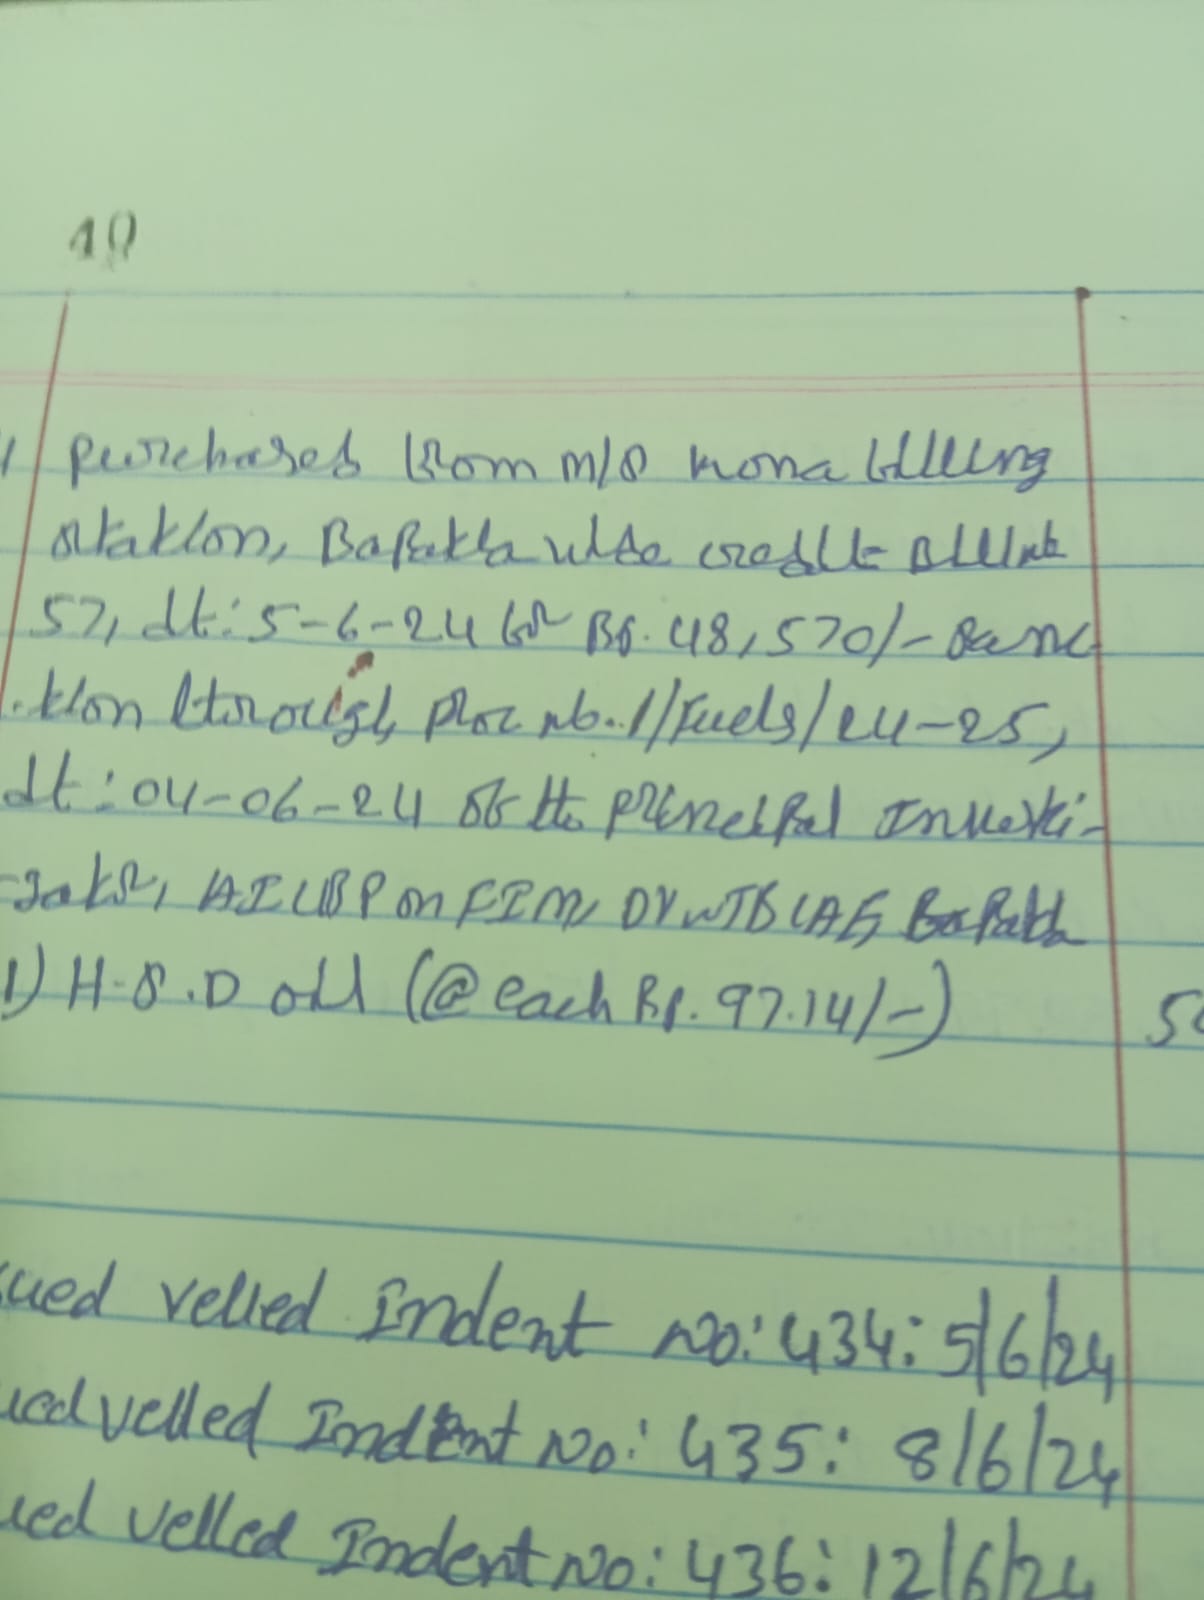 10
purchased from M/s Mona filling
station, Bapatla vide credit Bill No
57, dt: 5-6-24 for Rs. 48,570/- Sanc
-tion through Proc No. 1/Fuels/24-25,
dt: 04-06-24 of the Principal Investi-
-gator, AICRP on FIM, Dr NTR CAE, Bapatla
1) H.S.D oil (@ each Rs. 97.14/-)
ued velled Indent No: 434: 5/6/24
ued velled Indent No: 435: 8/6/24
ued velled Indent No: 436: 12/6/24